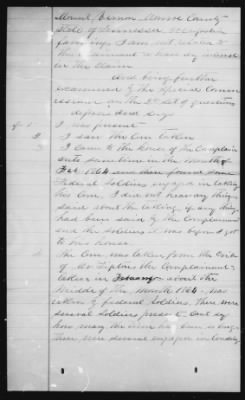 Mount Vernon Monroe County
State of Tennessee occupation
farming I am not related to
the claimant or have any interest
in the claim
And being further
examined by the Special Commis
sioner on the 2d set of questions
deposes and says
1 I was present
2 I saw the corn taken
3 I came to the house of the Complain
ants sometime in the month of
1864 and then found some
Federal Soldiers engaged in taking
the Corn. I did not hear any thing
said about the taking, if any thing
had been said by the Complainant
and the Soldiers it was before I got
to the house
4 The Corn was taken from the
of the Complainant
taken in January about the
middle of the month 1864 was
taken by federal Soldiers, There were
several Soldiers present. Cant say
how many
there were several engaged in loading